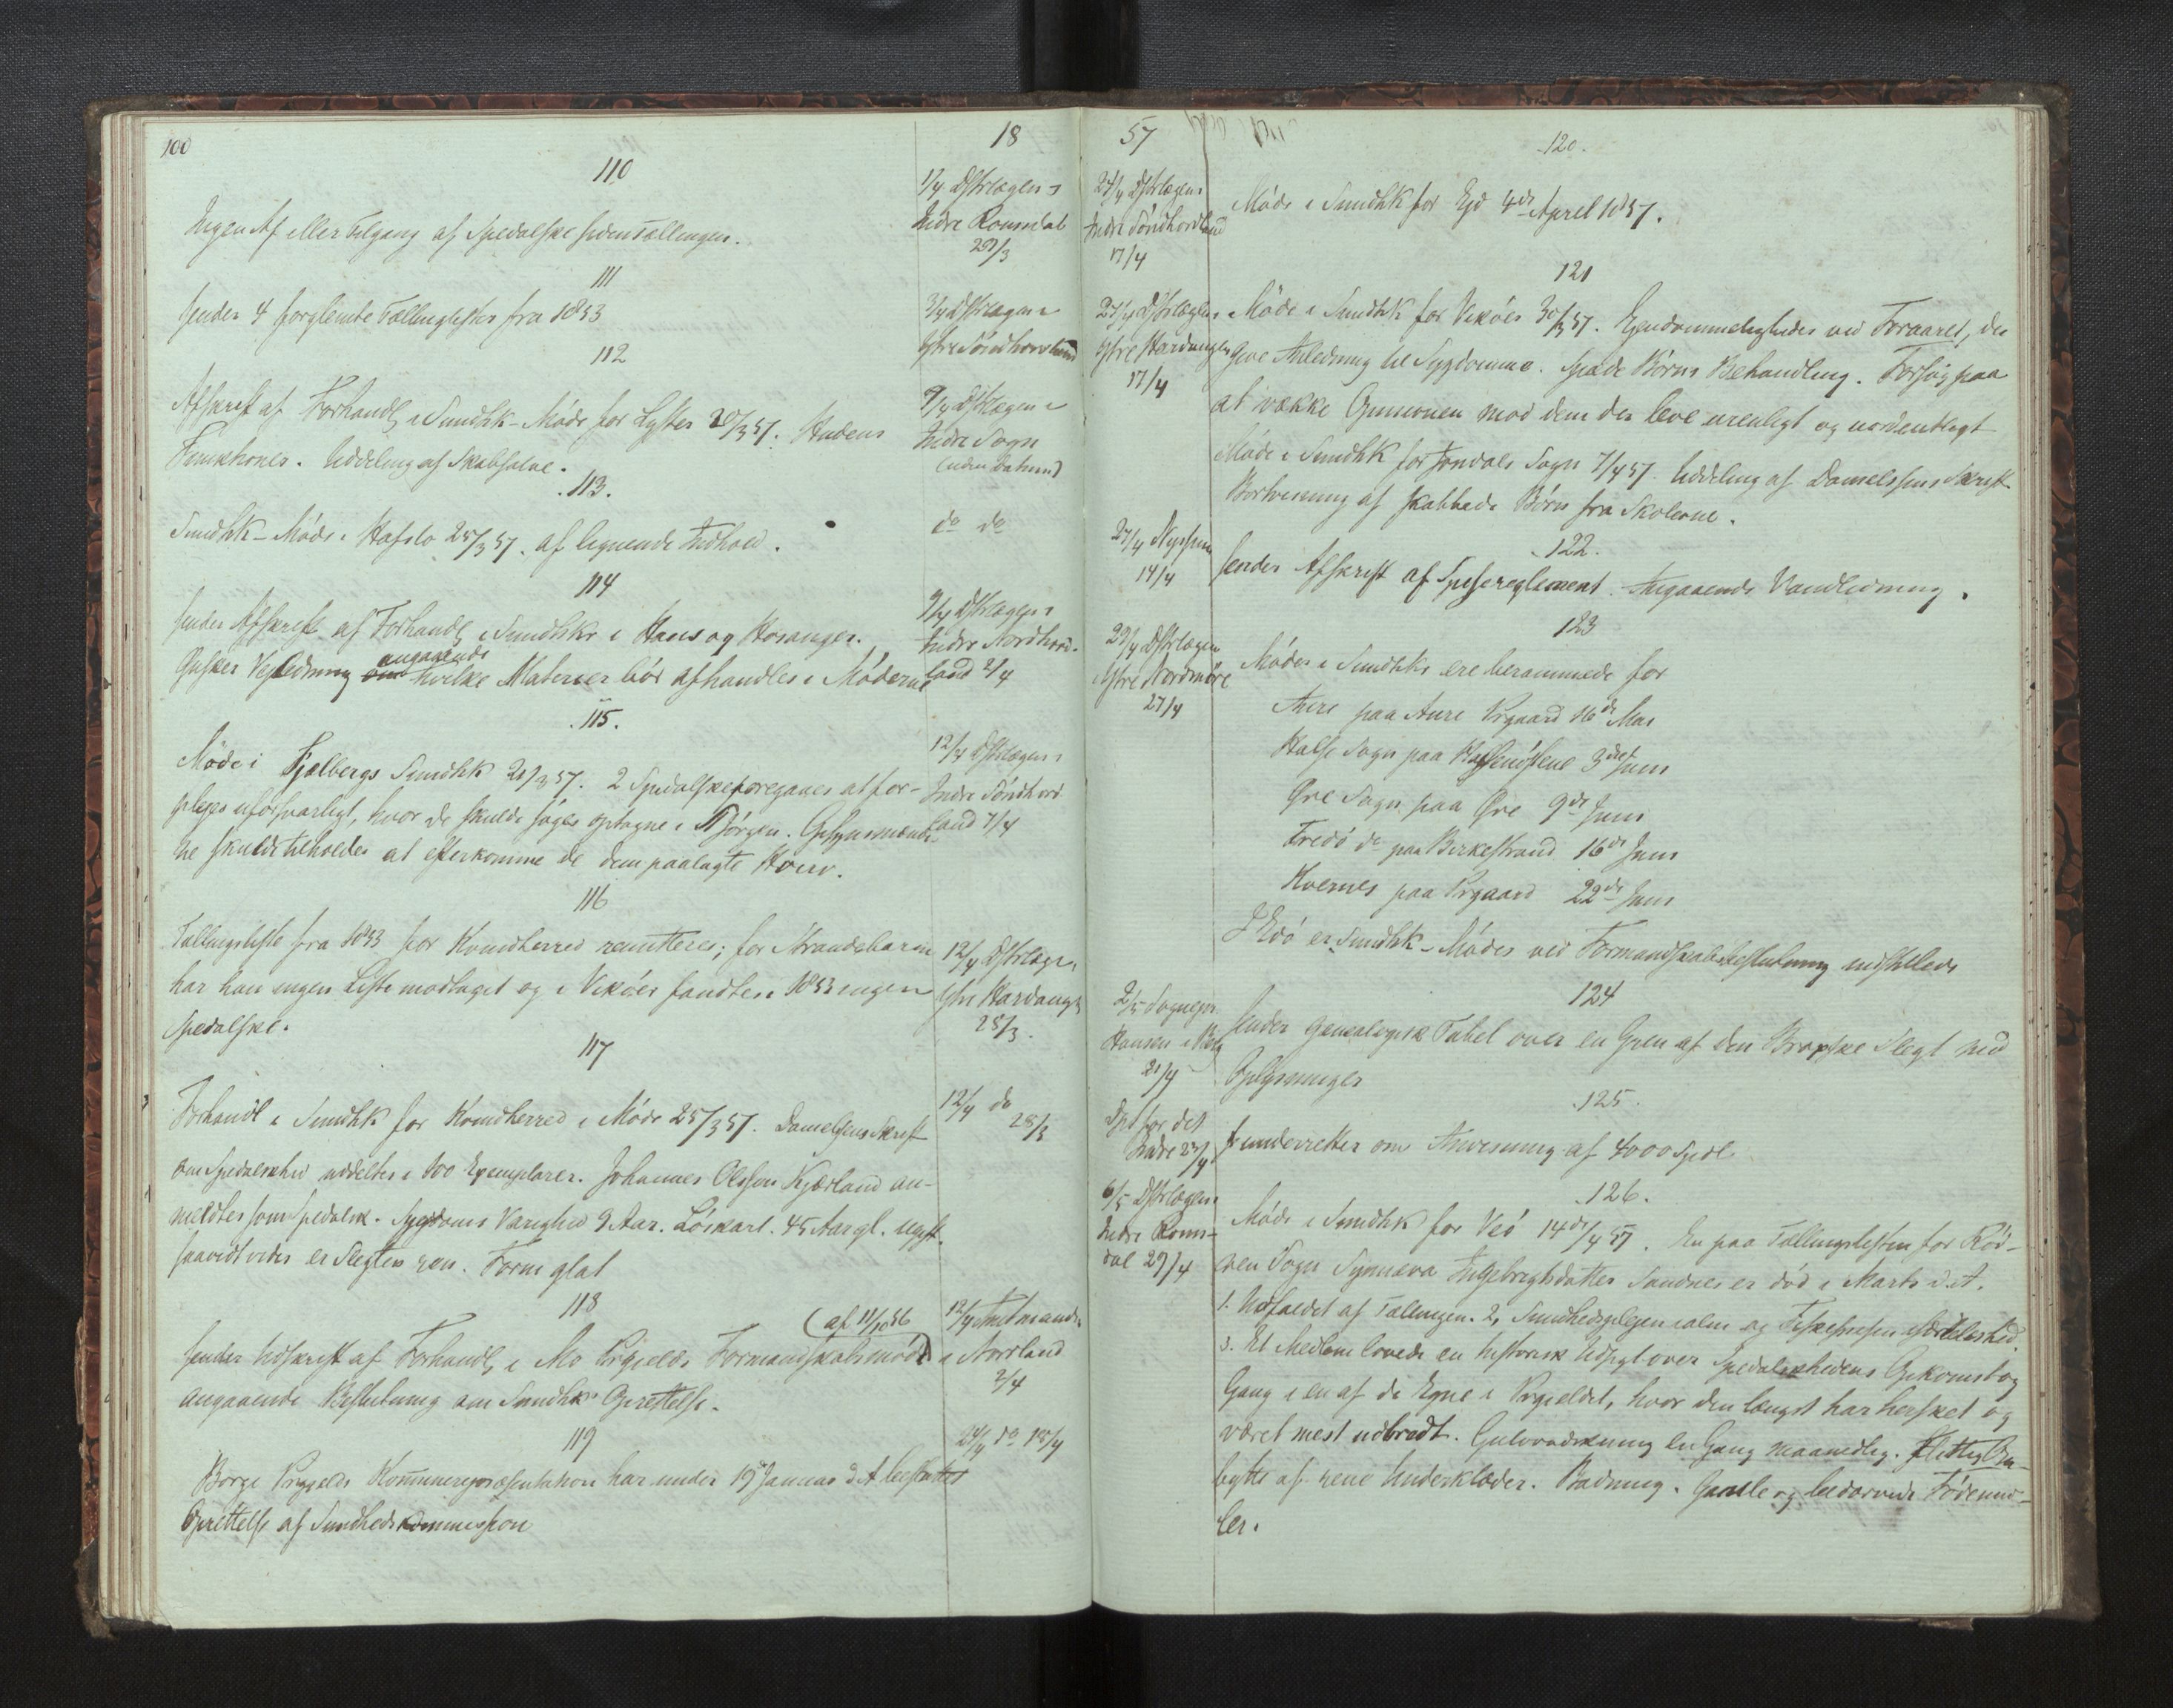 100
18
110
Ingen Af eller Tilgang af Spedalske siden Tællingen.
1/4 Dstrlægen i
Indre Romsdal
29/3
111
sender 4 forglemte Tællingslister fra 1853
3/4 Dstrlægen i
Ytre Søndhordland
112
Afskrift af Forhandl i Sundhk-Møde for Lyster 20/3 57. Hudens
Funktioner. Uddeling af Skabsalve.
9/4 Dstlægen i
Indre Sogn
(uden Datum)
113.
Sundhk-Møde i Hafslo 25/3 57. af lignende Indhold.
do do
114
sender Afskrift af Forhandl i Sundhkr i Haus og Hosanger.
Ønsker Vejledning om angaaende hvilke Materier bør afhandles i Møderne
9/4 Dstlægen i
Indre Nordhord-
land 2/4
115.
Møde i Fjælbergs Sundhk 21/3 57. 2 Spedalske foregaves at for-
pleges uforsvarligt, hvor de skulde søges optagne i St Jørgen. Opsynsmænde-
ne skulde tilholdes at efterkomme de dem paalagte Hverv.
12/4 Dstlægen i
Indre Søndhord
land 7/4
116
Tællingsliste fra 1853 for Kvindherred remitteres; for Strandebarm
har han ingen Liste modtaget og i Vikøer fandtes i 1853 ingen
Spedalske.
12/4 Dstrlæge i
Ytre Hardanger
28/3.
117
Forhandl i Sundhk for Kvindherred i Møde 25/3 57. Danielsens Skrift
om Spedalskhed uddeltes i 100 Exemplarer. Johannes Olsson Kjærland an-
meldtes som Spedalsk. Sygdoms Varighed 9 Aar. Løskarl. 45 Aar gl. ugift.
saavidt vides er Slegten ren. Form glat
12/4 do
28/3
118
(af 11/10 56
sender Udskrift af Forhandl i Mo Prgjelds Formandskabsmøde
angaaende Beslutning om Sundhks Oprettelse.
12/4 Amtmanden
i Norrland
2/4
119
Borge Prgjelds Kommunerepræsentation har under 19de Januar d. A. besluttet
Oprettelse af Sundhedskommission
24/4 do 18/4
57
120.
24/4 Dstrlægen i
Indre Søndhordland
17/4
Møde i Sundhk for Eid 4de April 1857.
121
27/4 Dstrlægen i
Ytre Hardanger
17/4
Møde i Sundhk for Vikøer 30/3 57. Eiendommeligheder ved Foraaret, der
give Anledning til Sygdomme. Spæde Børns Behandling. Forsøg paa
at vække Opinionen mod dem der leve urenligt og uordentligt
Møde i Sundhk for Jondals Sogn 7/4 57. Uddeling af Danielssens Skrift
Bortvisning af skabbede Børn fra Skolerne.
122.
27/4
14/4
sender Afskrift af Spisereglement. Angaaende Vandledning.
123
29/4 Dstrlægen
Ytre Nordmøre
27/4
Møder i Sundhkr ere berammede for
Aure paa Aure Prgaard 16de Mai
Halse Sogn paa 3die Juni
Øre Sogn paa Øre 9de Juni
Fredø do paa Birkestrand 16de Juni
Kvernes paa Prgaard 22de Juni
I Edø er Sundhk-Møder ved Formandskabsbeslutning indstillede
124
2/5 Sognepr
Hansen i
21/4
sender genealogisk Tabel over en Green af den Slegt med
Oplysninger
125.
Dpt for det
Indre 23/4
underretter om Anvisning af 4000 Spdl
126.
6/5 Dstrlægen i
Indre Roms-
dal 29/4
Møde i Sundhk for Veø 14de/4 57. En paa Tællingslisten for Rød-
ven Sogn Synneva Ingebrigtsdatter Sandnes er død i Marts d. A.
1. Udfaldet af Tællingen. 2, Sundhedsplejen i alm og
3. Et Medlem lovede en historisk Udsigt over Spedalskhedens Opkomst og
Gang i en af de Egne i Prgjeldet, hvor den længst har hersket og
været mest udbredt. Gulvvadskning en Gang maanedlig. Flittig Om-
bytte af rene Underklæder. Badning. Gamle og bedærvede Fødemid-
ler.